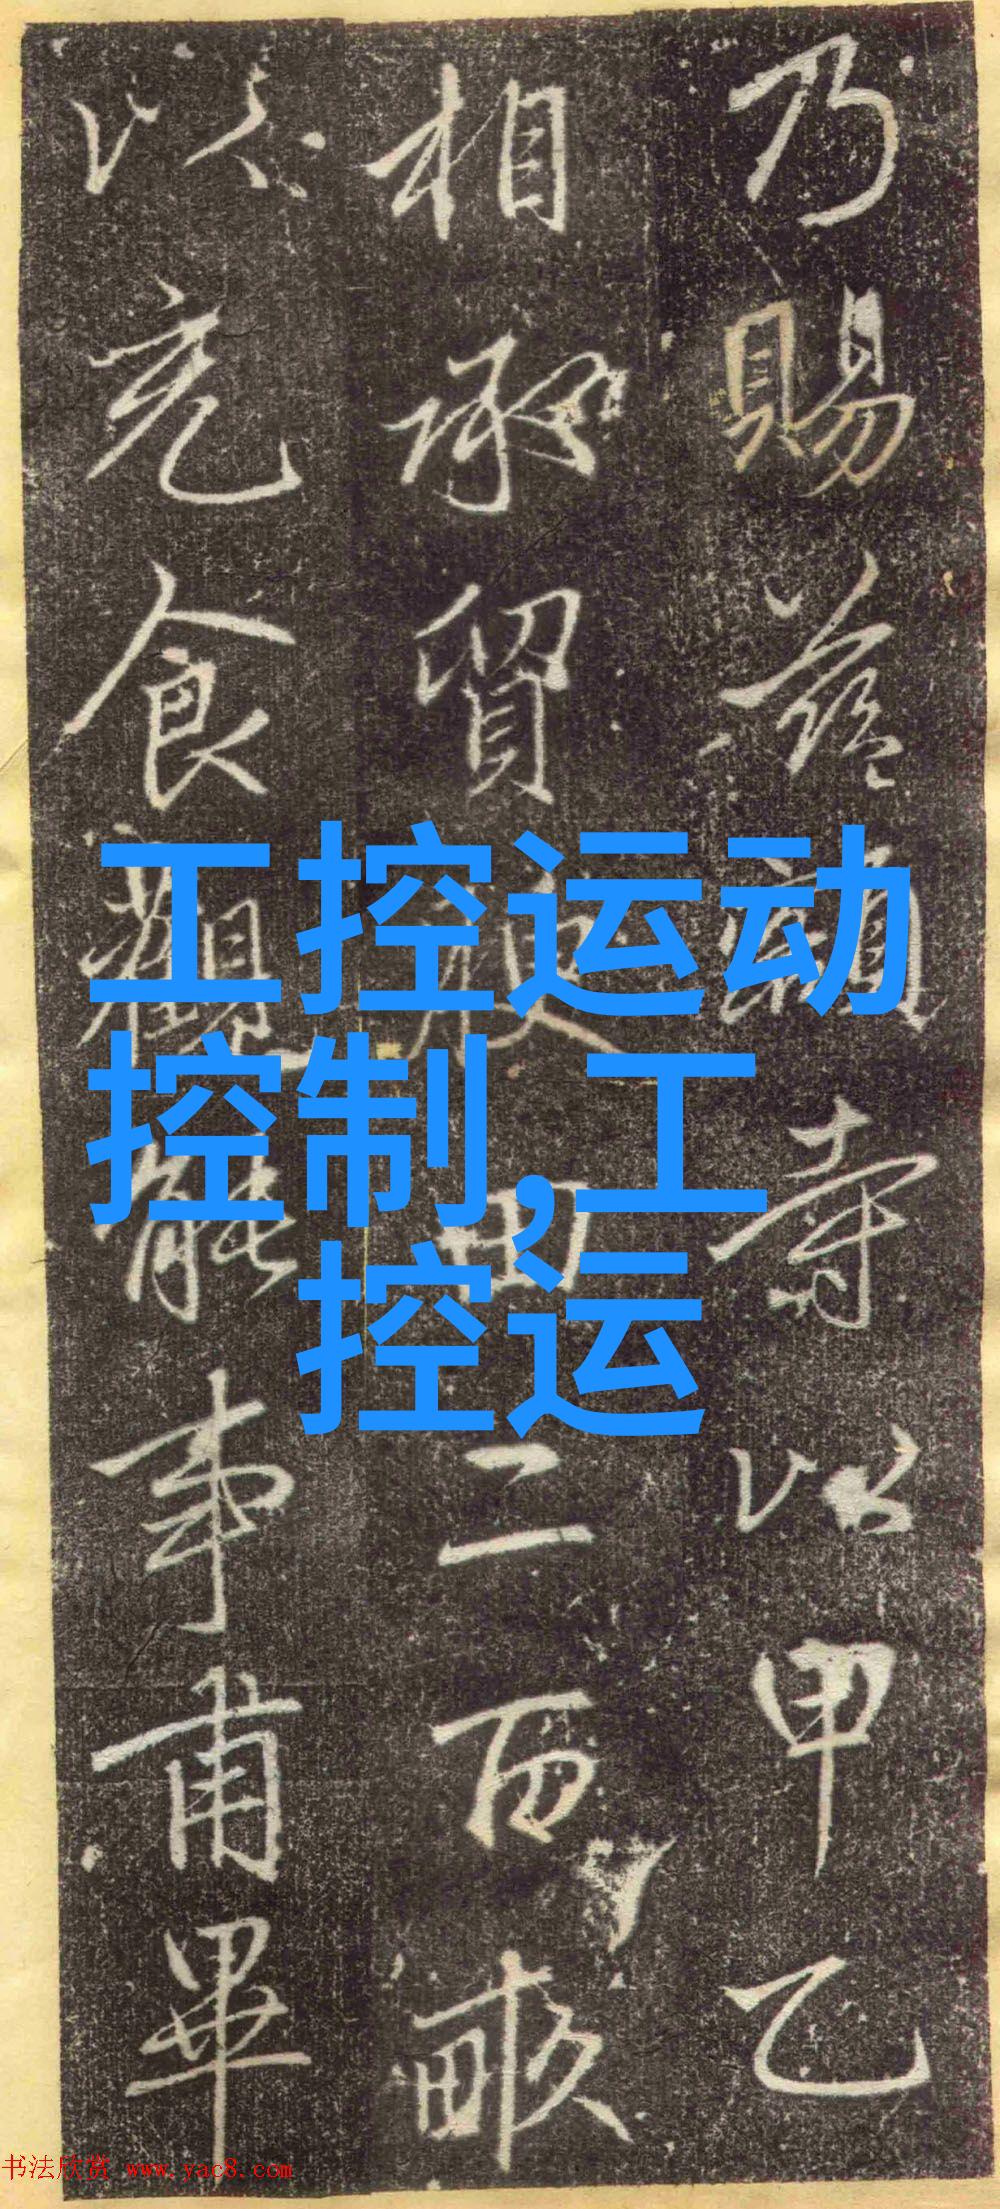 乃賜益額寿以甲乙
相承貿腴田二百畝
以充食觀能事甫畢
工控运动
控制,工
控运
书法欣赏 www.yac8.com